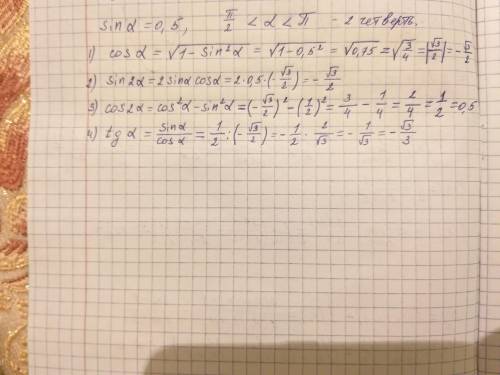 sin α = 0,5, π/2 < α < π - 2 четверть.
1) cos α = √(1 - sin²α) = √(1 - 0,5²) = √0,75 = √(3/4) = |√3/2| = -√3/2
2) sin 2α = 2 sin α cos α = 2 · 0,5 · (-√3/2) = -√3/2
3) cos 2α = cos²α - sin²α = (-√3/2)² - (1/2)² = 3/4 - 1/4 = 2/4 = 1/2 = 0,5
4) tg α = sin α/cos α = 1/2 : (-√3/2) = -1/2 · 2/√3 = -1/√3 = -√3/3